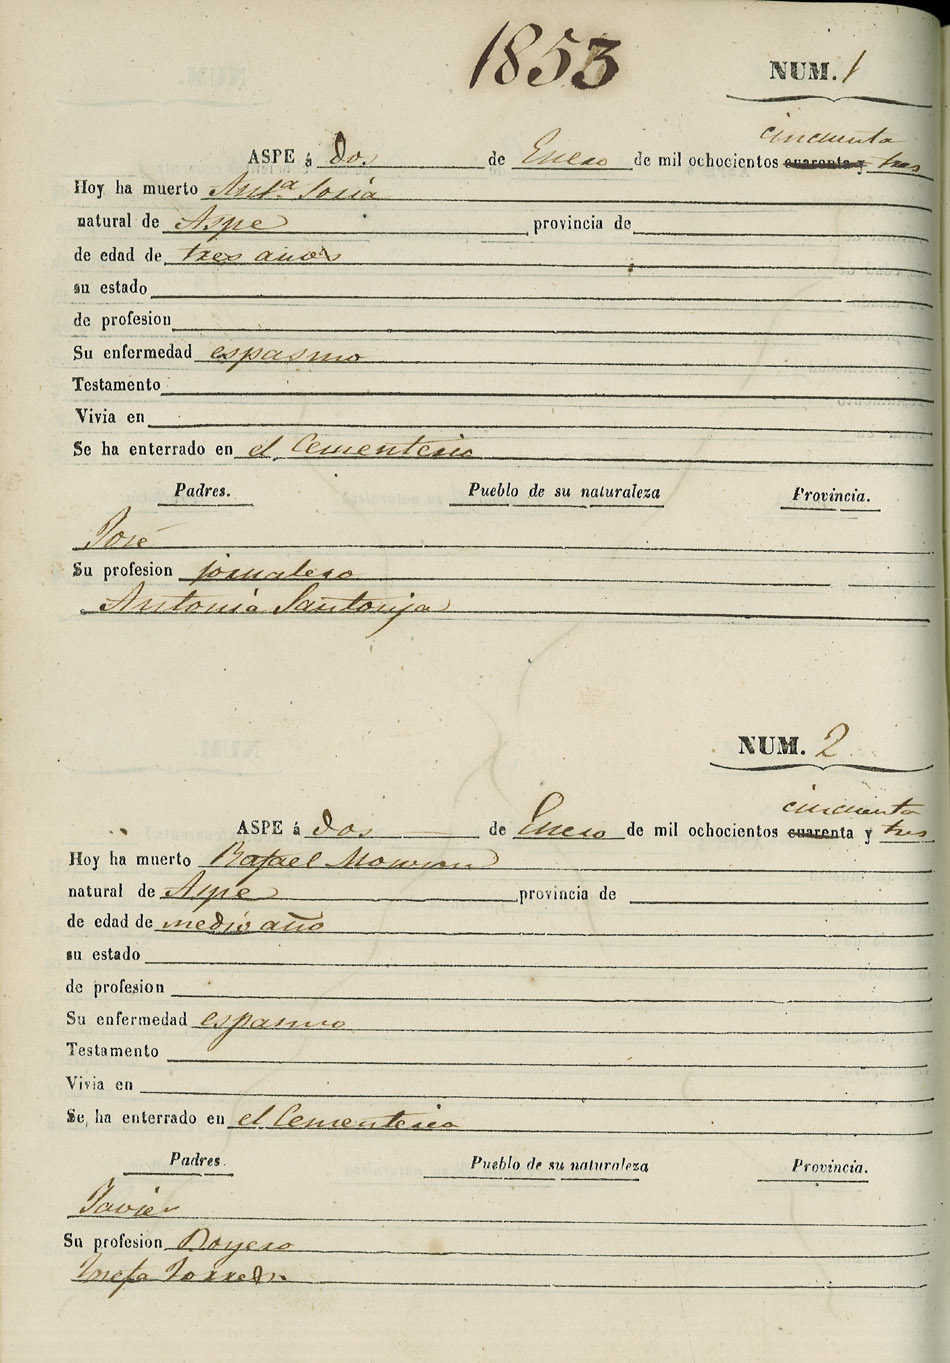 1853
NUM. 1
cincuenta
ASPE á Do. de Enero de mil ochocientos cuarenta y tres
Hoy ha muerto Antª Soria
natural de Aspe provincia de
de edad de tres años
su estado
de profesion
Su enfermedad espasmo
Testamento
Vivia en
Se ha enterrado en el Cementerio
Padres. Pueblo de su naturaleza Provincia.
José
Su profesion jornalero
Antonia Santonja
NUM. 2
cincuenta
ASPE á dos de Enero de mil ochocientos cuarenta y tres
Hoy ha muerto Rafael
natural de Aspe provincia de
de edad de medio año
su estado
de profesion
Su enfermedad espasmo
Testamento
Vivia en
Se ha enterrado en el Cementerio
Padres. Pueblo de su naturaleza Provincia.
Javier
Su profesion Boyero
Josefa Torres